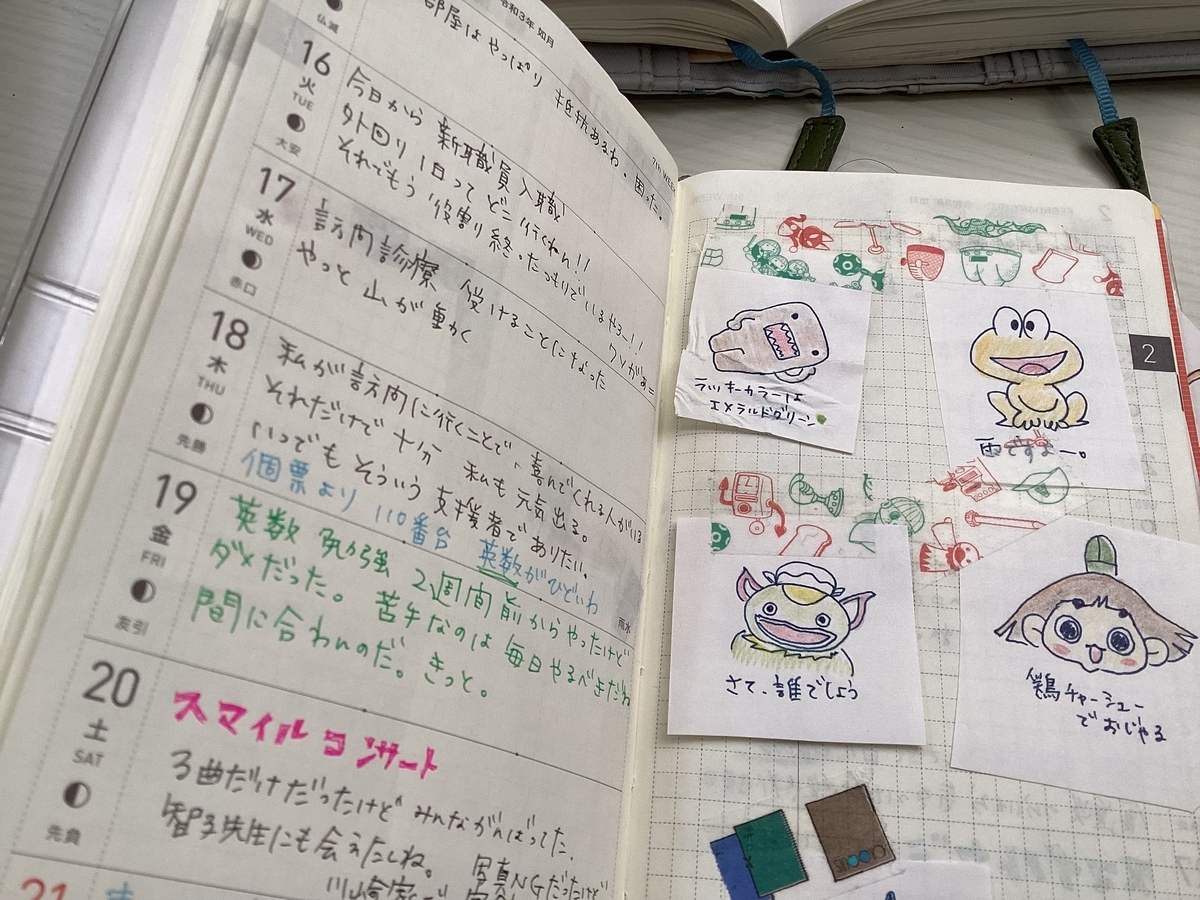 令和3年 如月
仏滅
部屋はやっぱり 抵抗あるわ。困った。
7th WEEK
16
火
TUE
大安
今日から 新職員入職!
外回り 1日って どこ行くねん!!
それでもう 役割り終わったつもりでいるやろー!!
17
水
WED
赤口
訪問診療 受けることになった
やっと 山が 動く
18
木
THU
先勝
私が訪問に行くことで、喜んでくれる人がいる
それだけで 十分 私も元気出る。
いつでも そういう 支援者でありたい。
個票より 110番台 英数がひどいわ
19
金
FRI
友引
雨水
英数 勉強 2週間前からやったけど
ダメだった。 苦手なのは 毎日やるべきだね
間に合わんのだ。きっと。
20
土
SAT
先負
スマイルコンサート
3曲だけだったけど みんながんばってた。
智子先生にも会えたしね。 写真NGだったけど
21
2
ラッキーカラーは
エメラルドグリーン
雨ですよー。
2
さて、誰でしょう
鶏チャーシュー
でおじゃる